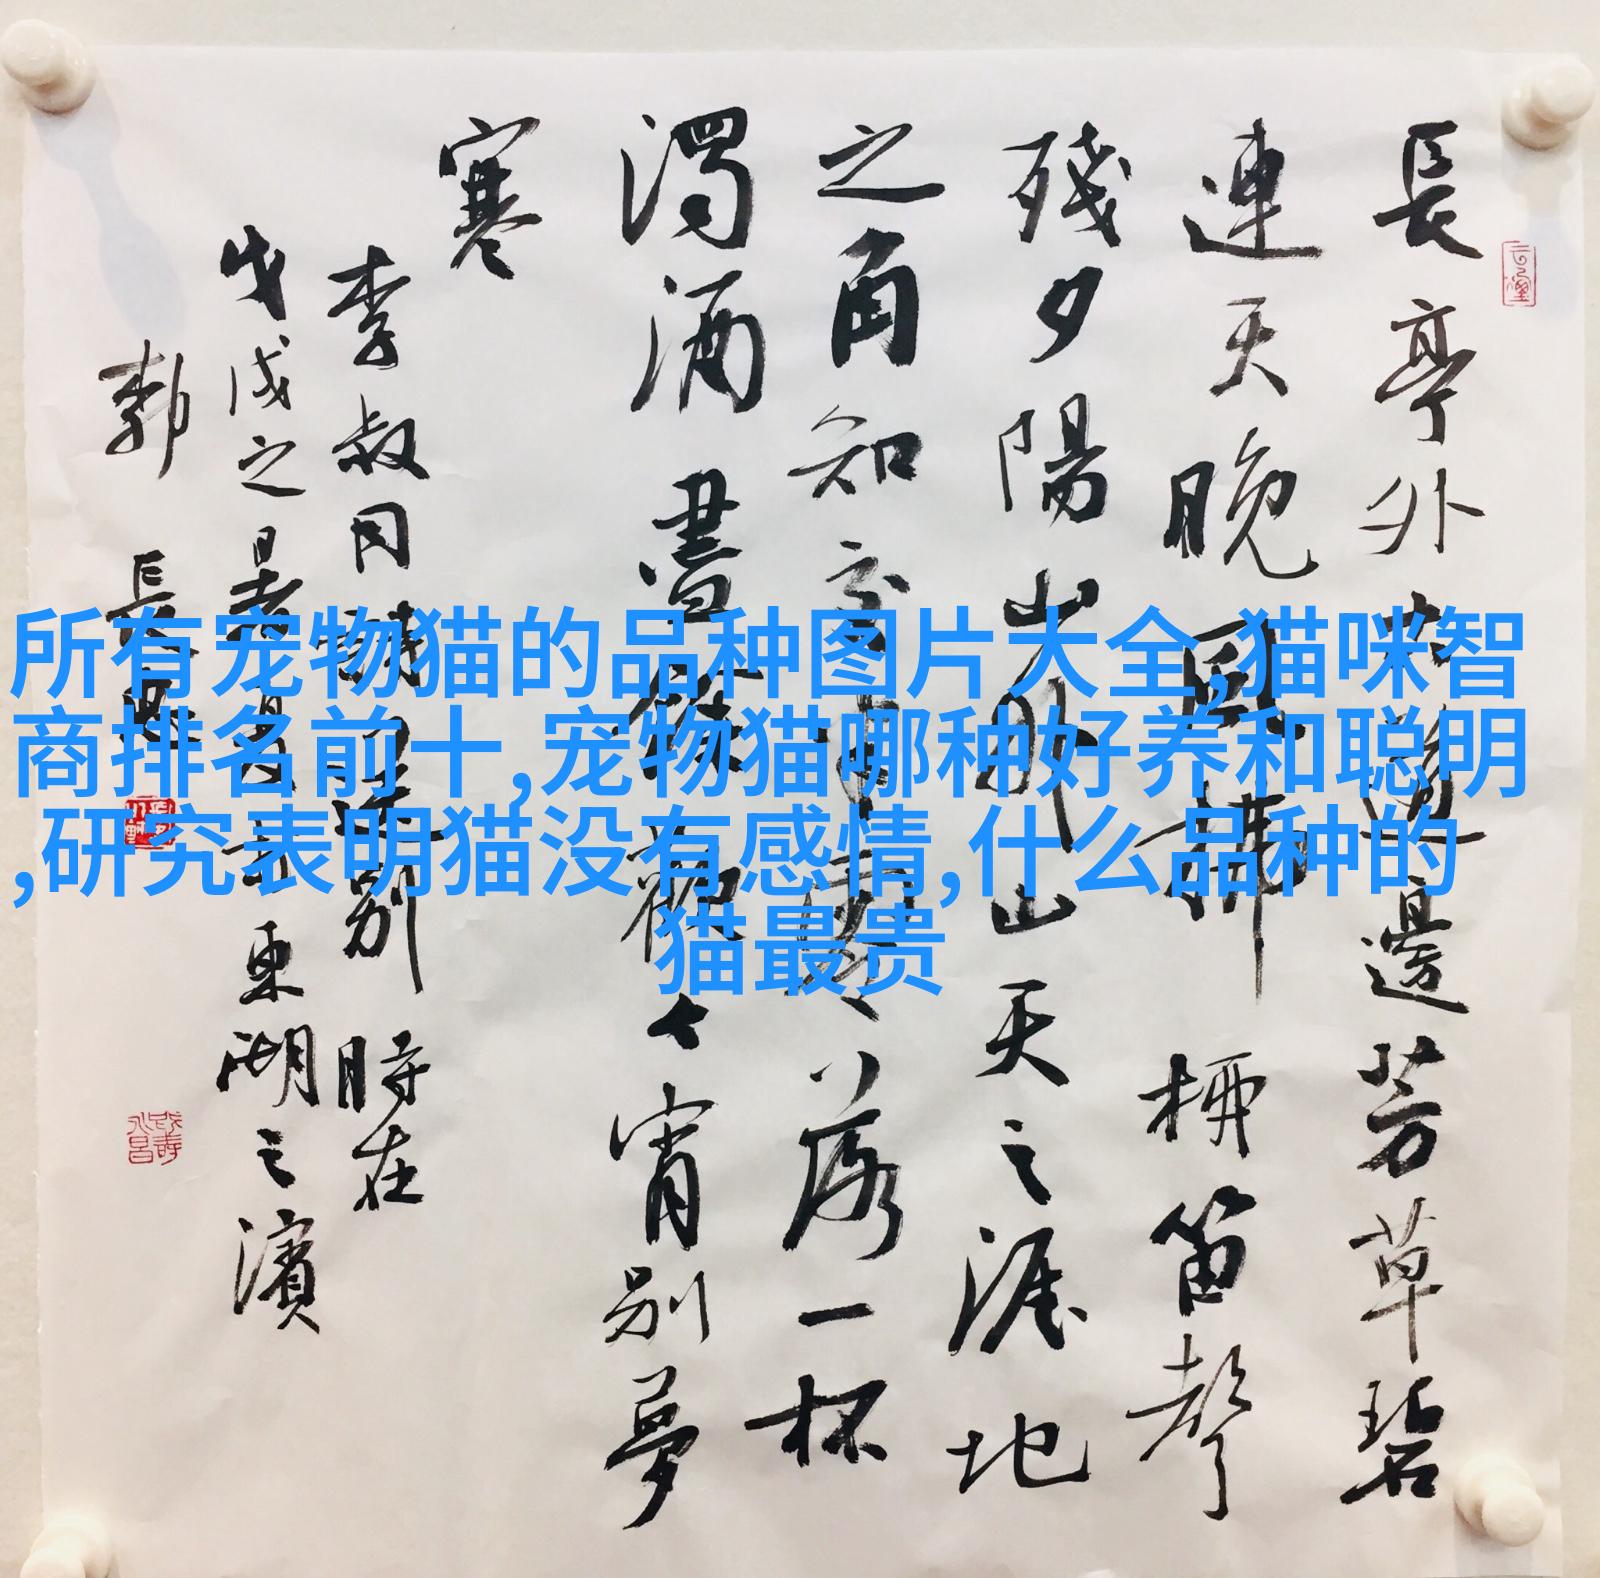 長亭外古道邊芳草碧
連天晚風拂柳笛聲
殘夕陽山外山天之涯地
之角知交半零落一杯
濁酒盡餘歡今宵別夢
寒
李叔同詩送別 時在
戊戌之暑月於東湖之濱
所有宠物猫的品种图片大全,猫咪智
商排名前十,宠物猫哪种好养和聪明
,研究表明猫没有感情,什么品种的
猫最贵